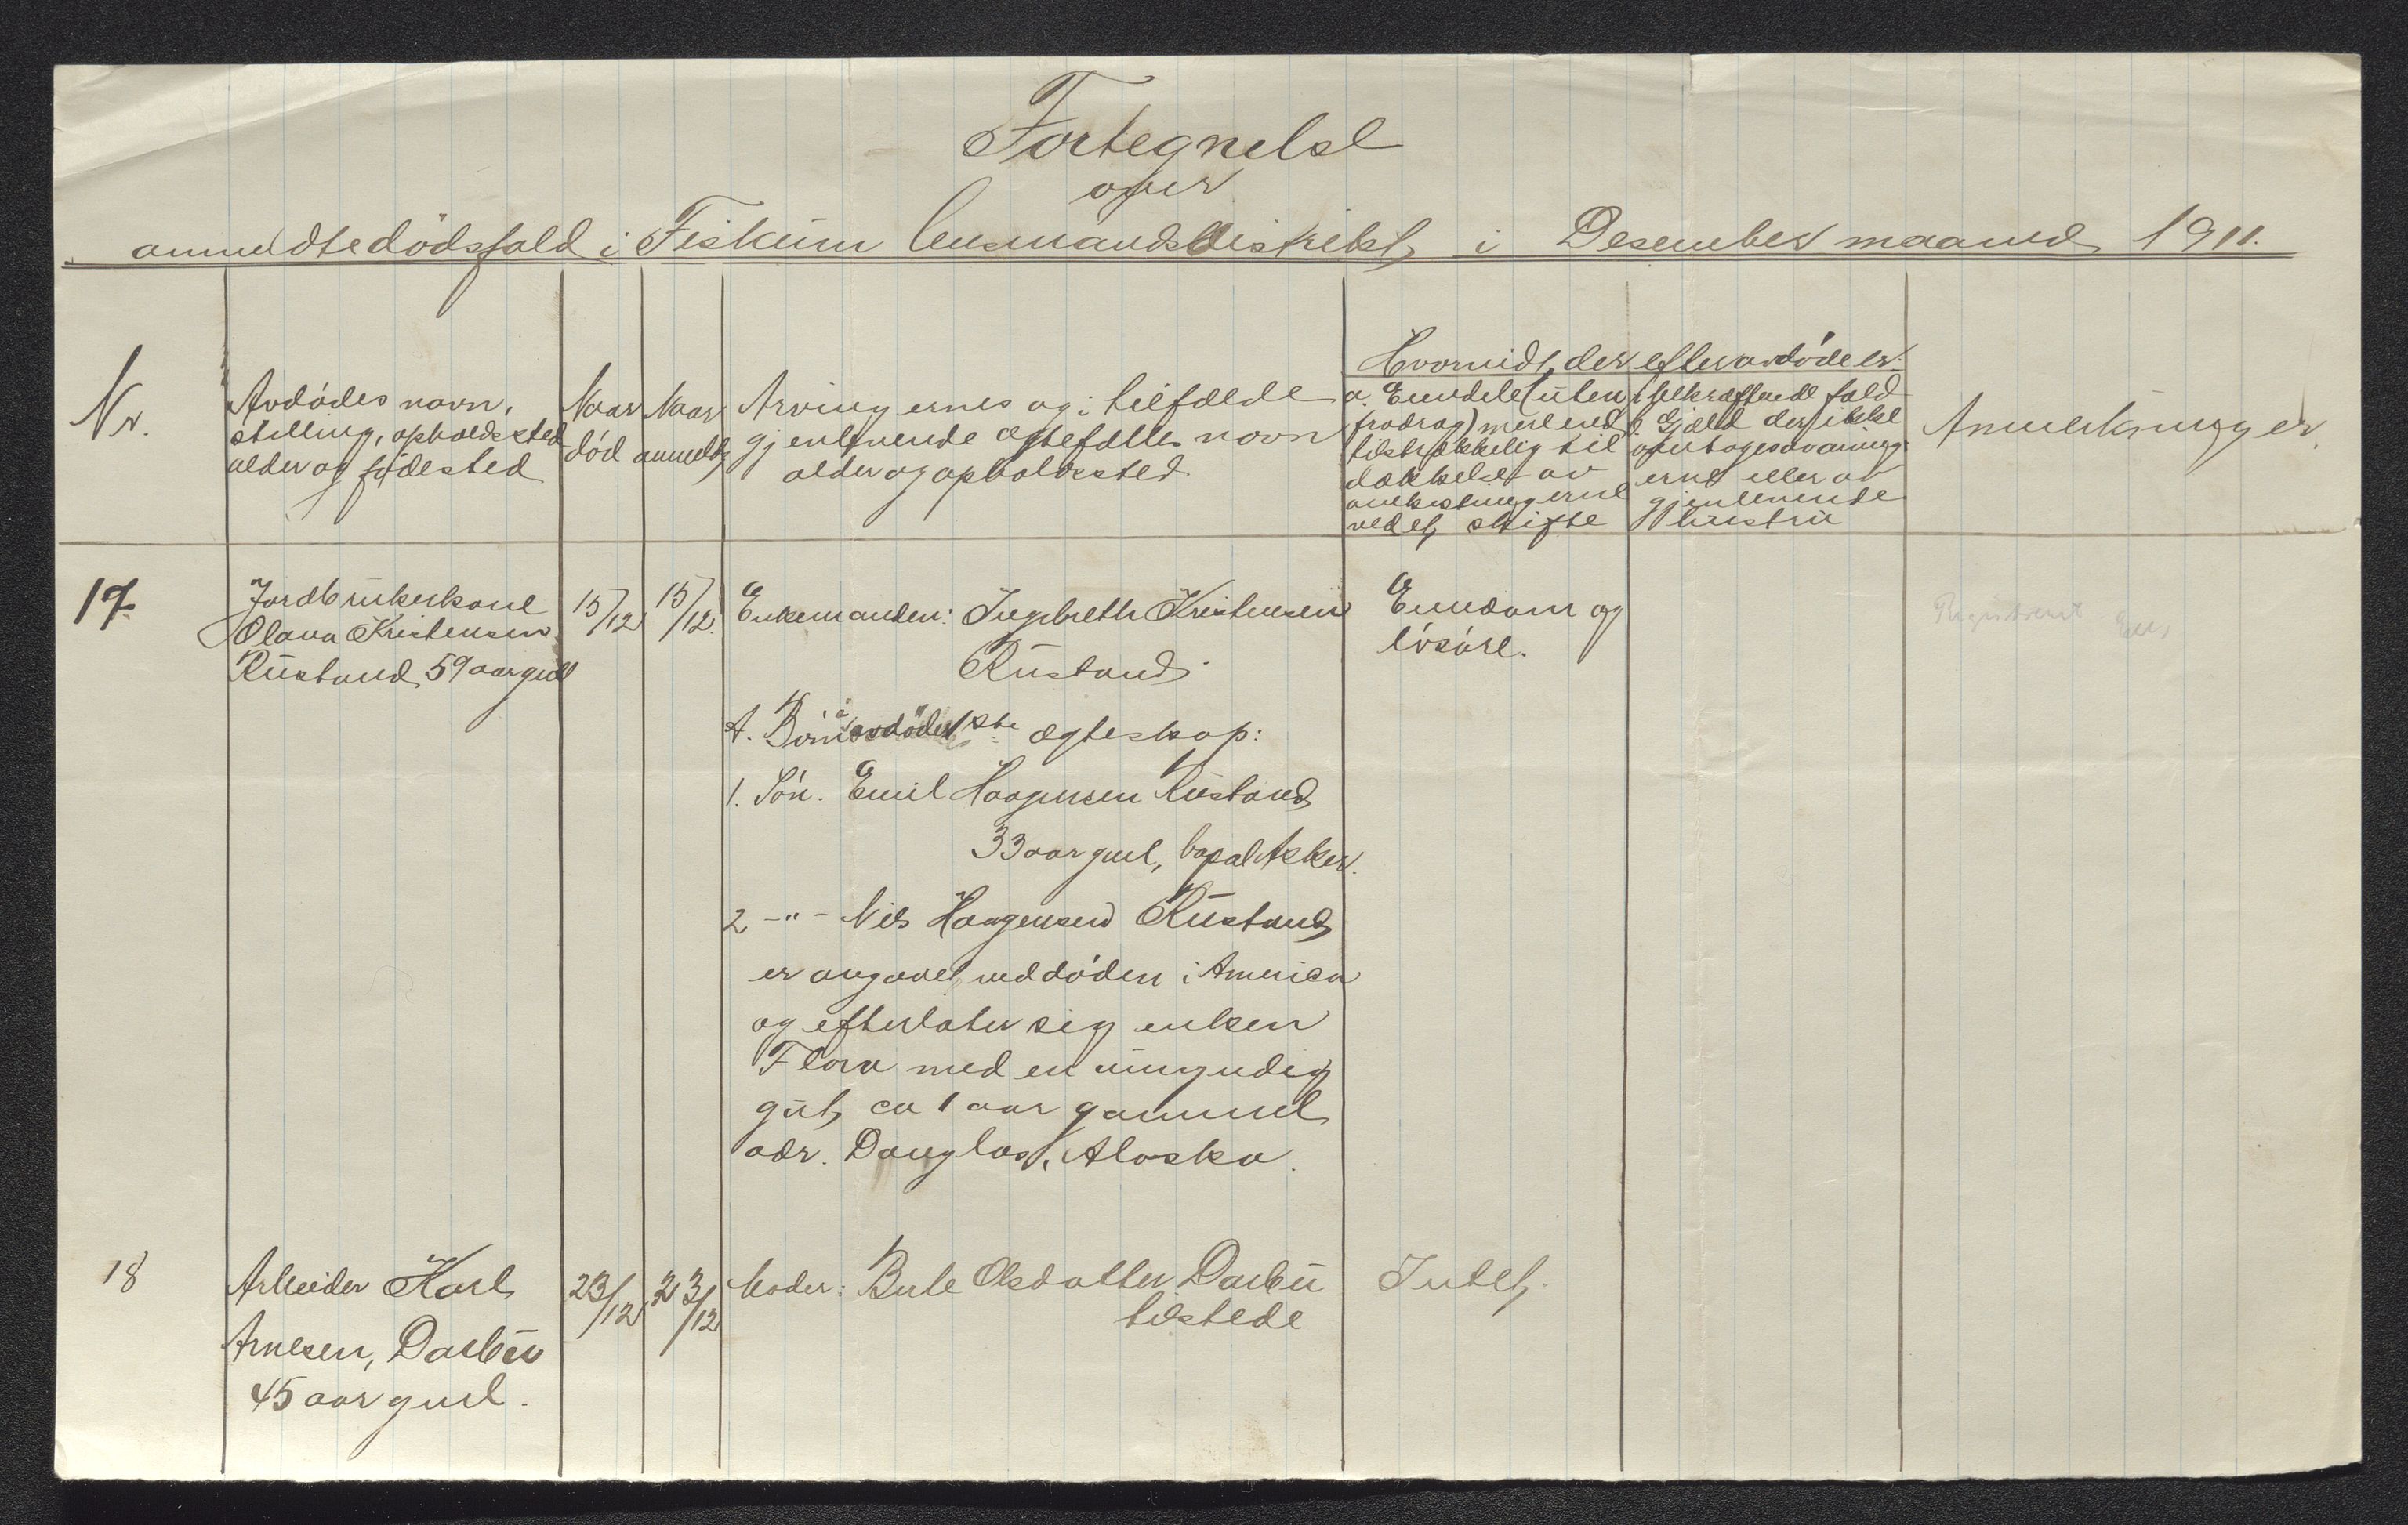 Fortegnelse
over
anmeldte dödsfald i Fiskum lensmandsdistrikt i Desember maaned 1911.
Nr.
Avdödes navn,
stilling, opholdssted
alder og födested
Naar
död
Naar
anmeldt
Arvingernes og i tilfælde
gjenlevende egtefælles navn
alder og opholdssted
Hvorvidt der efter avdöde er:
a. Eiendele (uten
fradrag) mere end
tilstrækkelig til
dækkelse av
omkostningerne
ved et skifte
i bekræftende fald
b. Gjæld der ikke
overtages av arving-
erne eller av
gjenlevende
hustru
Anmerkninger
17.
Jordbrukerkone
Olava Kristensen
Rustand, 59 aar gml
15/12
15/12.
Enkemanden: Ingebreth Kristensen
Rustand.
A. Börn i avdödes 1ste egteskap:
1. Sön. Emil Haagensen Rustand
33 aar gml, bopæl Aker.
2 -"- Nils Haagensen Rustand
er avgaaet ved döden i America
og efterlater sig enken
Flora med en umyndig
gut, ca 1 aar gammel
adr. Douglas, Alaska.
Eiendom og
lösöre.
Registrert
18
Arbeider Karl
Arnesen, Darbu
45 aar gml.
23/12
23/12
Moder: Berte Olsdatter Darbu
tilstede
Intet.